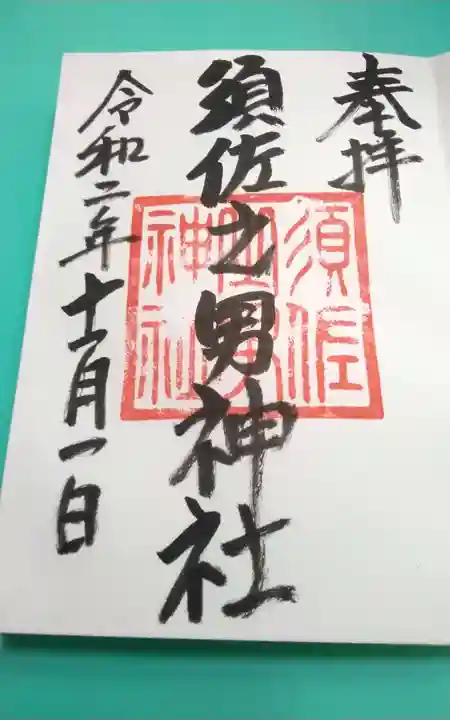 奉拝
須佐之男神社
令和二年十一月一日
須佐
神社